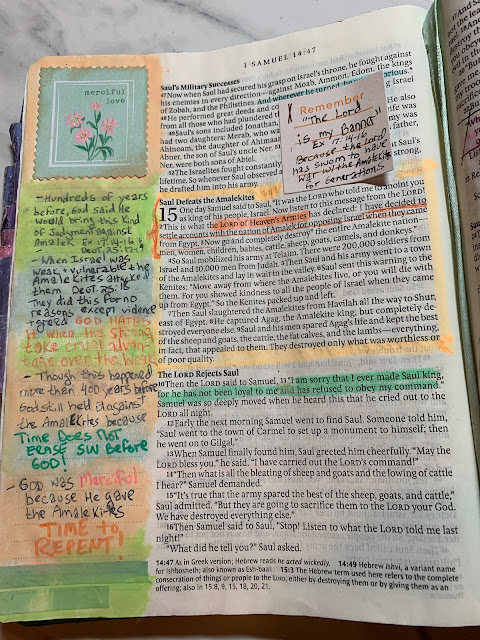 1 SAMUEL 14:47
merciful
love
- Hundreds of years
before, God said He
would bring this kind
of Judgment against
Amalek. EX 17:14-16 +
Deut. 25:19
- When Israel was
weak + vulnerable the
Amalekites attacked
them. Deut 25:18
- They did this for no
reasons except violence
+ greed. GOD HATES
it when the strong
take cruel advan-
tage over the weak
- Though this happened
more than 400 years before
God still held it against
the Amalekites because
Time Does Not
ERASE SIN BeFore
GOD!
- GOD was Merciful
because He gave
the Amalekites
TIME to
REPENT!
Remember
"The Lord
is my Banner
EX 17:14-16
Because the Lord
has sworn to
war with the Amalekites
for Generations
Saul's Military Successes
47 Now when Saul had secured his grasp on Israel's throne, he fought against
his enemies in every direction—against Moab, Ammon, Edom, the kings
of Zobah, and the Philistines. And wherever he turned, he was victorious.
48 He performed great deeds and
from all those who had plundered
49 Saul's sons included Jonathan,
had two daughters: Merab, who was
Ahinoam, the daughter of Ahimaaz
Abner, the son of Saul's uncle Ner.
Ner, were both sons of Abiel.
52 The Israelites fought constantly
lifetime. So whenever Saul observed
he drafted him into his army.
Saul Defeats the Amalekites
15 One day Samuel said to Saul, "It was the LORD who told me to anoint you
as king of his people, Israel. Now listen to this message from the LORD!
2 This is what the LORD of Heaven's Armies has declared: I have decided to
settle accounts with the nation of Amalek for opposing Israel when they came
from Egypt. 3 Now go and completely destroy the entire Amalekite nation—
men, women, children, babies, cattle, sheep, goats, camels, and donkeys."
4 So Saul mobilized his army at Telaim. There were 200,000 soldiers from
Israel and 10,000 men from Judah. 5 Then Saul and his army went to a town
of the Amalekites and lay in wait in the valley. 6 Saul sent this warning to the
Kenites: "Move away from where the Amalekites live, or you will die with
them. For you showed kindness to all the people of Israel when they came
up from Egypt." So the Kenites packed up and left.
7 Then Saul slaughtered the Amalekites from Havilah all the way to Shur,
east of Egypt. 8 He captured Agag, the Amalekite king, but completely de-
stroyed everyone else. 9 Saul and his men spared Agag's life and kept the best
of the sheep and goats, the cattle, the fat calves, and the lambs—everything,
in fact, that appealed to them. They destroyed only what was worthless or
of poor quality.
The LORD Rejects Saul
10 Then the LORD said to Samuel, 11 "I am sorry that I ever made Saul king,
for he has not been loyal to me and has refused to obey my command."
Samuel was so deeply moved when he heard this that he cried out to the
LORD all night.
12 Early the next morning Samuel went to find Saul. Someone told him,
"Saul went to the town of Carmel to set up a monument to himself; then
he went on to Gilgal."
13 When Samuel finally found him, Saul greeted him cheerfully. "May the
LORD bless you," he said. "I have carried out the LORD's command!"
14 "Then what is all the bleating of sheep and goats and the lowing of cattle
I hear?" Samuel demanded.
15 "It's true that the army spared the best of the sheep, goats, and cattle,"
Saul admitted. "But they are going to sacrifice them to the LORD your God.
We have destroyed everything else."
16 Then Samuel said to Saul, "Stop! Listen to what the LORD told me last
night!"
"What did he tell you?" Saul asked.
14:47 As in Greek version; Hebrew reads he acted wickedly. 14:49 Hebrew Ishvi, a variant name
for Ishbosheth; also known as Esh-baal. 15:3 The Hebrew term used here refers to the complete
consecration of things or people to the LORD, either by destroying them or by giving them as an
offering; also in 15:8, 9, 15, 18, 20, 21.